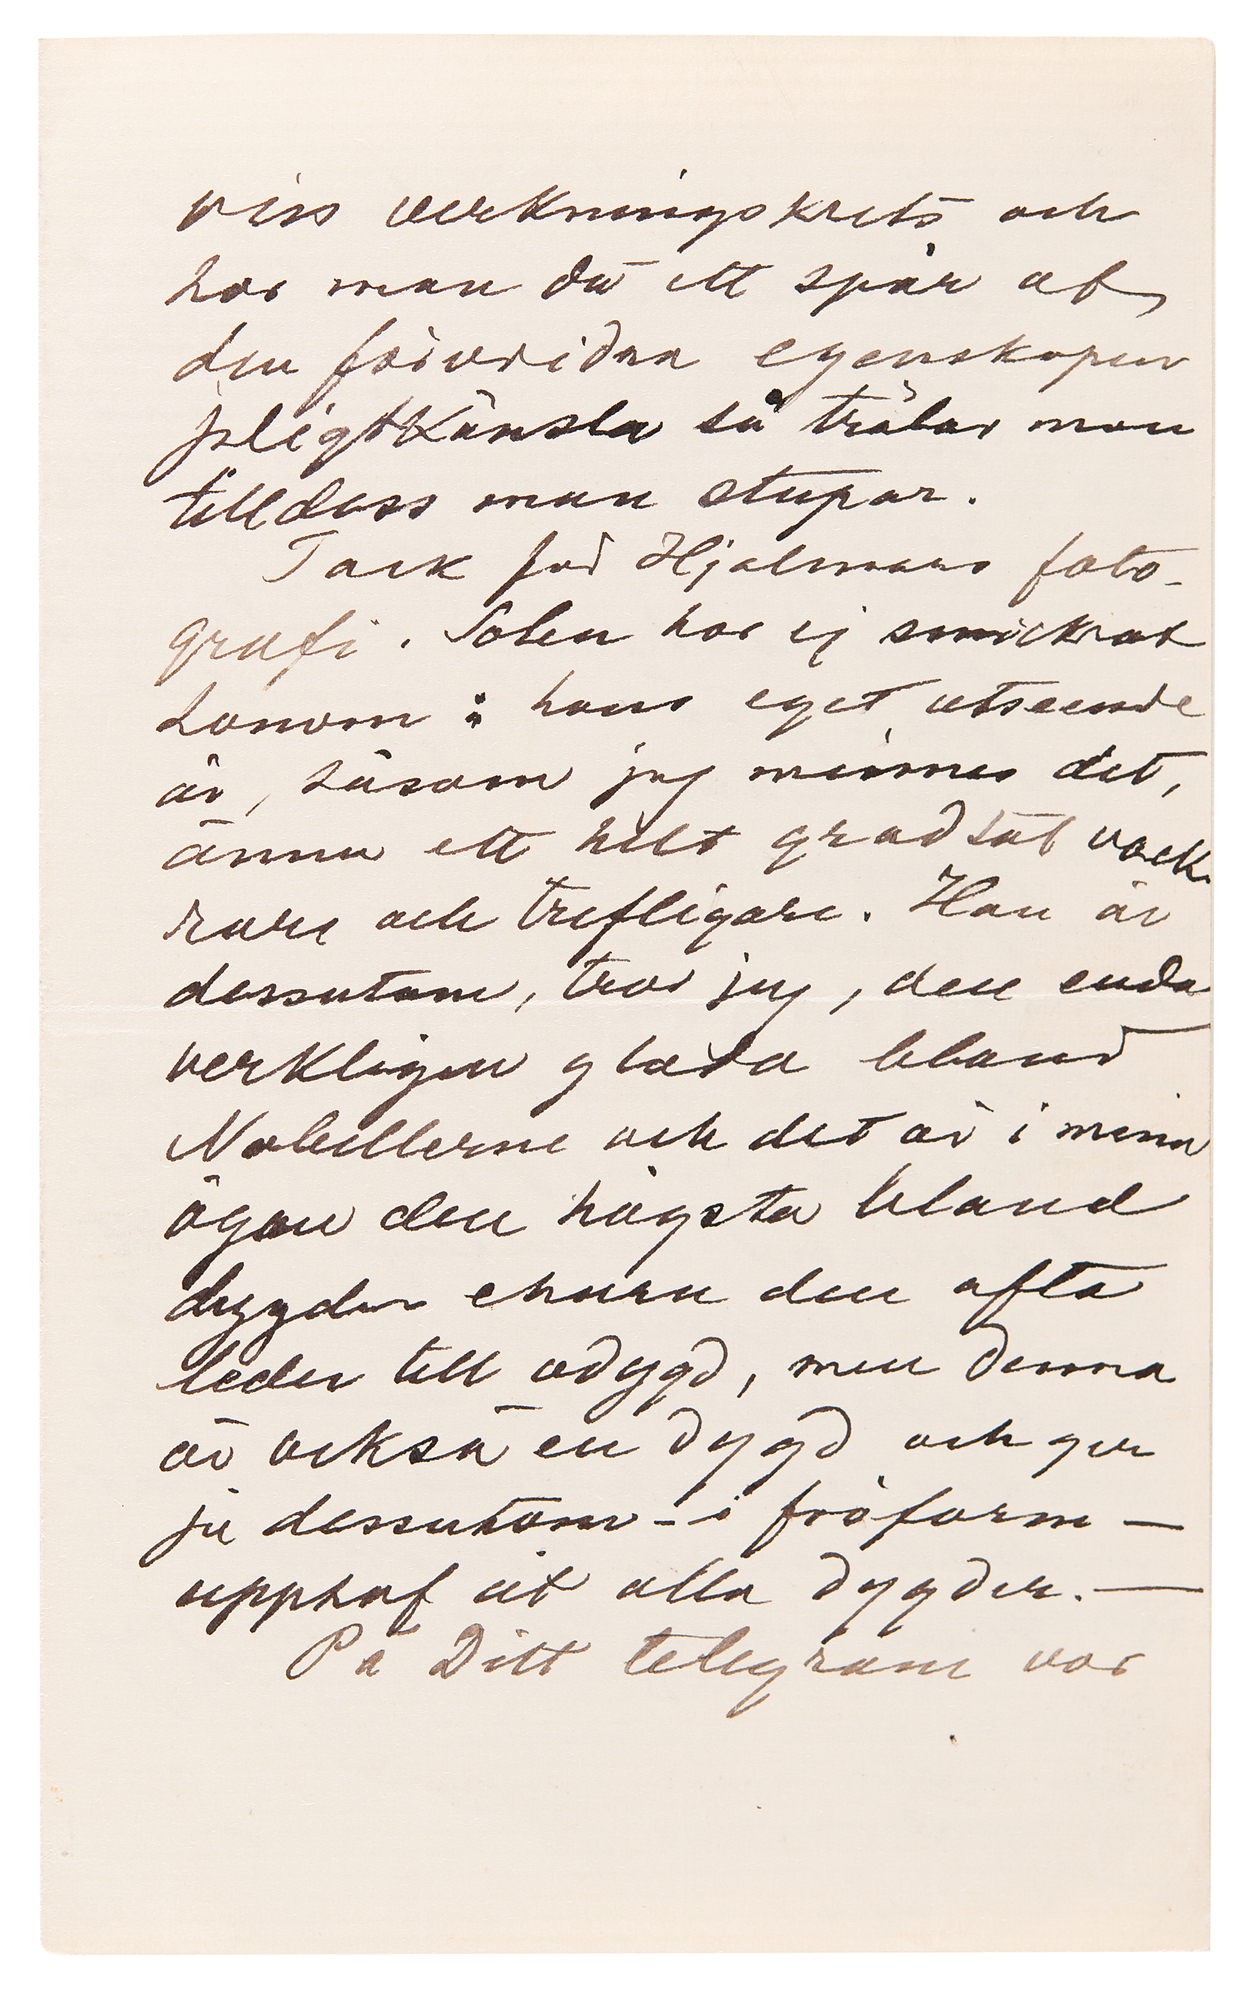 viss verkningskrets och
har man då ett spår af
den förvridna egenskapen
pligtkänsla så trälar man
tilldess man stupar.
Tack för Hjalmars foto-
grafi. Solen har ej smickrat
honom: hans eget utseende
är, såsom jag minnes det,
ännu ett helt gradtal vack-
rare och trefligare. Han är
dessutom, tror jag, den enda
verkligen glada bland
Nobellerne och det är i mina
ögon den högsta bland
dygder ehuru den ofta
leder till odygd, men denna
är också en dygd och ger
ju dessutom - i fröform —
upphof åt alla dygder. —
På Ditt telegram var